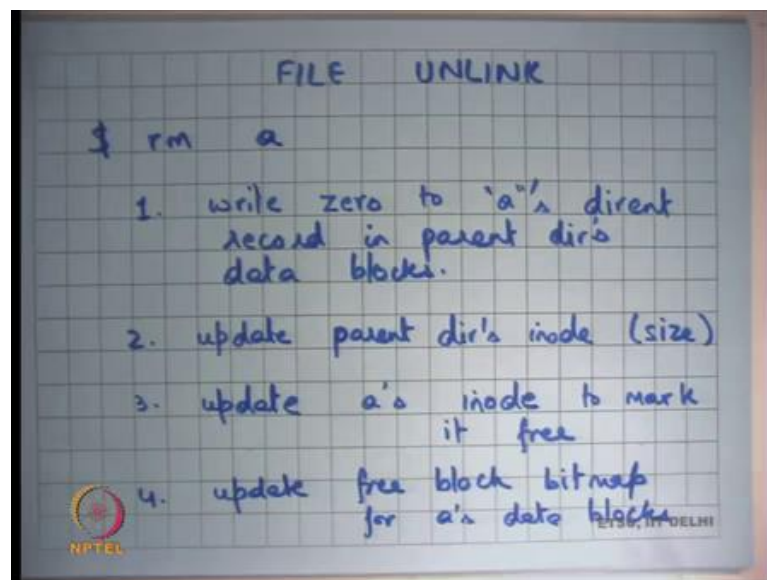 FILE UNLINK
$ rm a
1. write zero to "a"'s dirent
record in parent dir's
data blocks.
2. update parent dir's inode (size)
3. update a's inode to mark
it free
4. update free block bitmap
for a's data blocks
DELHI
NPTEL